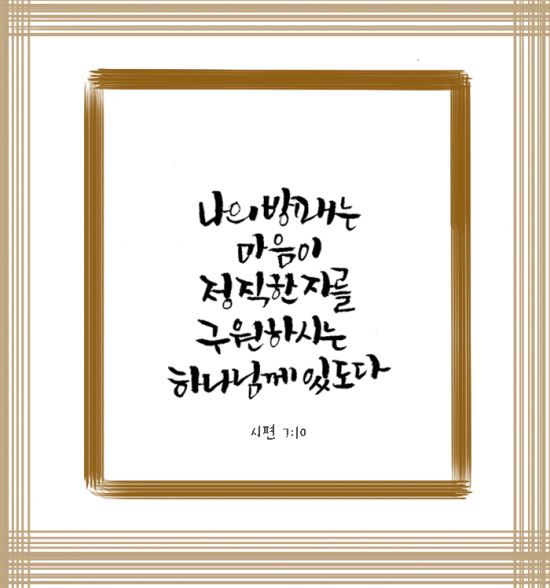 나의 방패는
마음이
정직한 자를
구원하시는
하나님께 있도다
시편 7:10